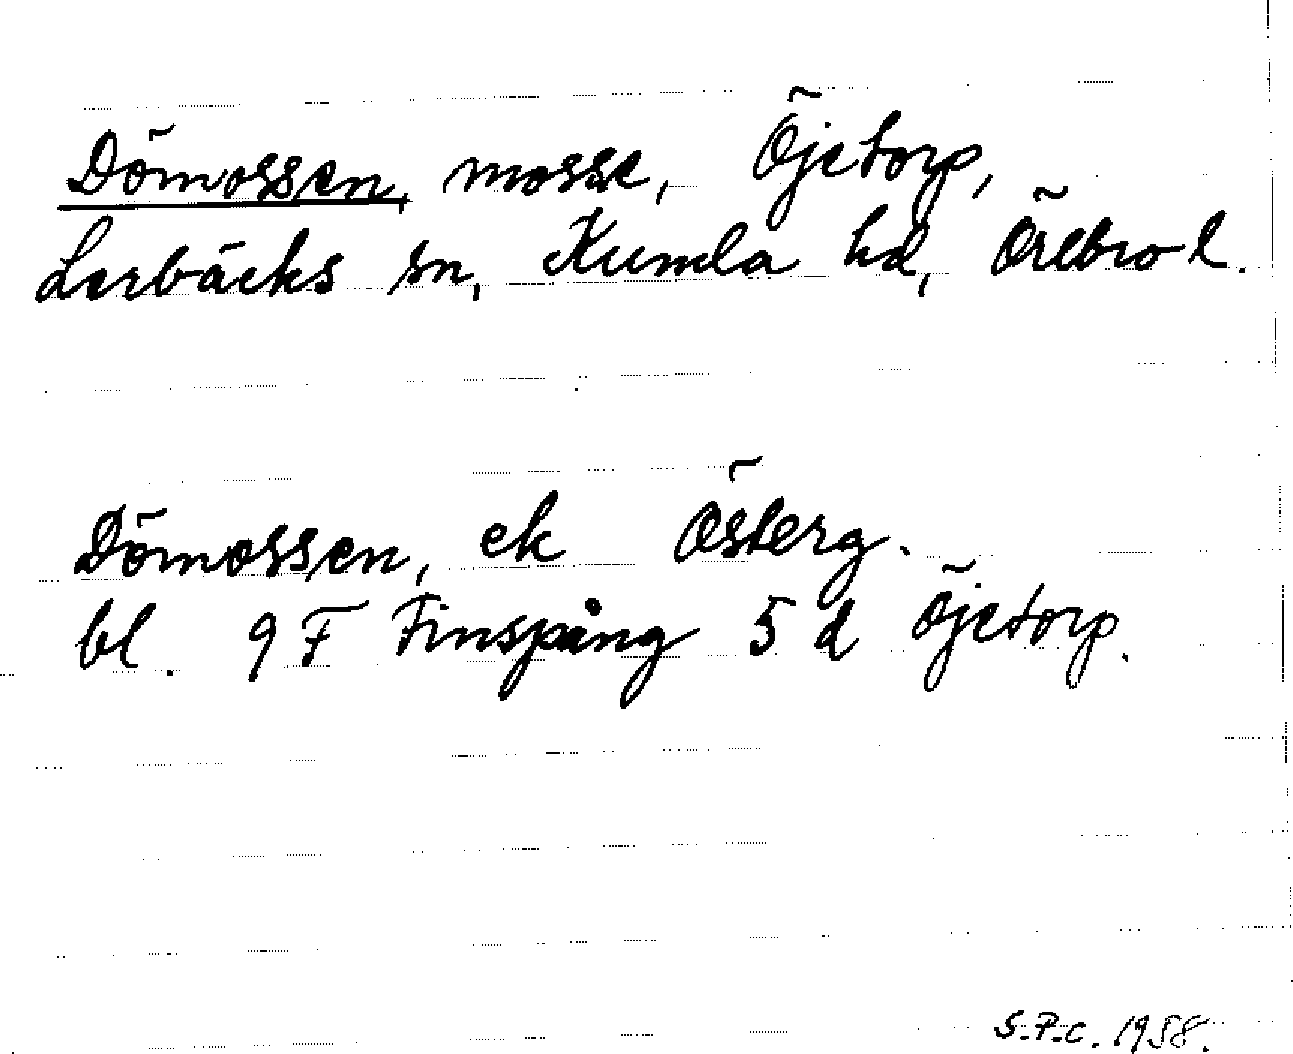 Dömossen, mosse, Öjetorp,
Lerbäcks sn, Kumla hd, Örebro l.
Dömossen, ek Österg.
bl. 9 F Finspång 5 d Öjetorp.
S.P.C. 1958.